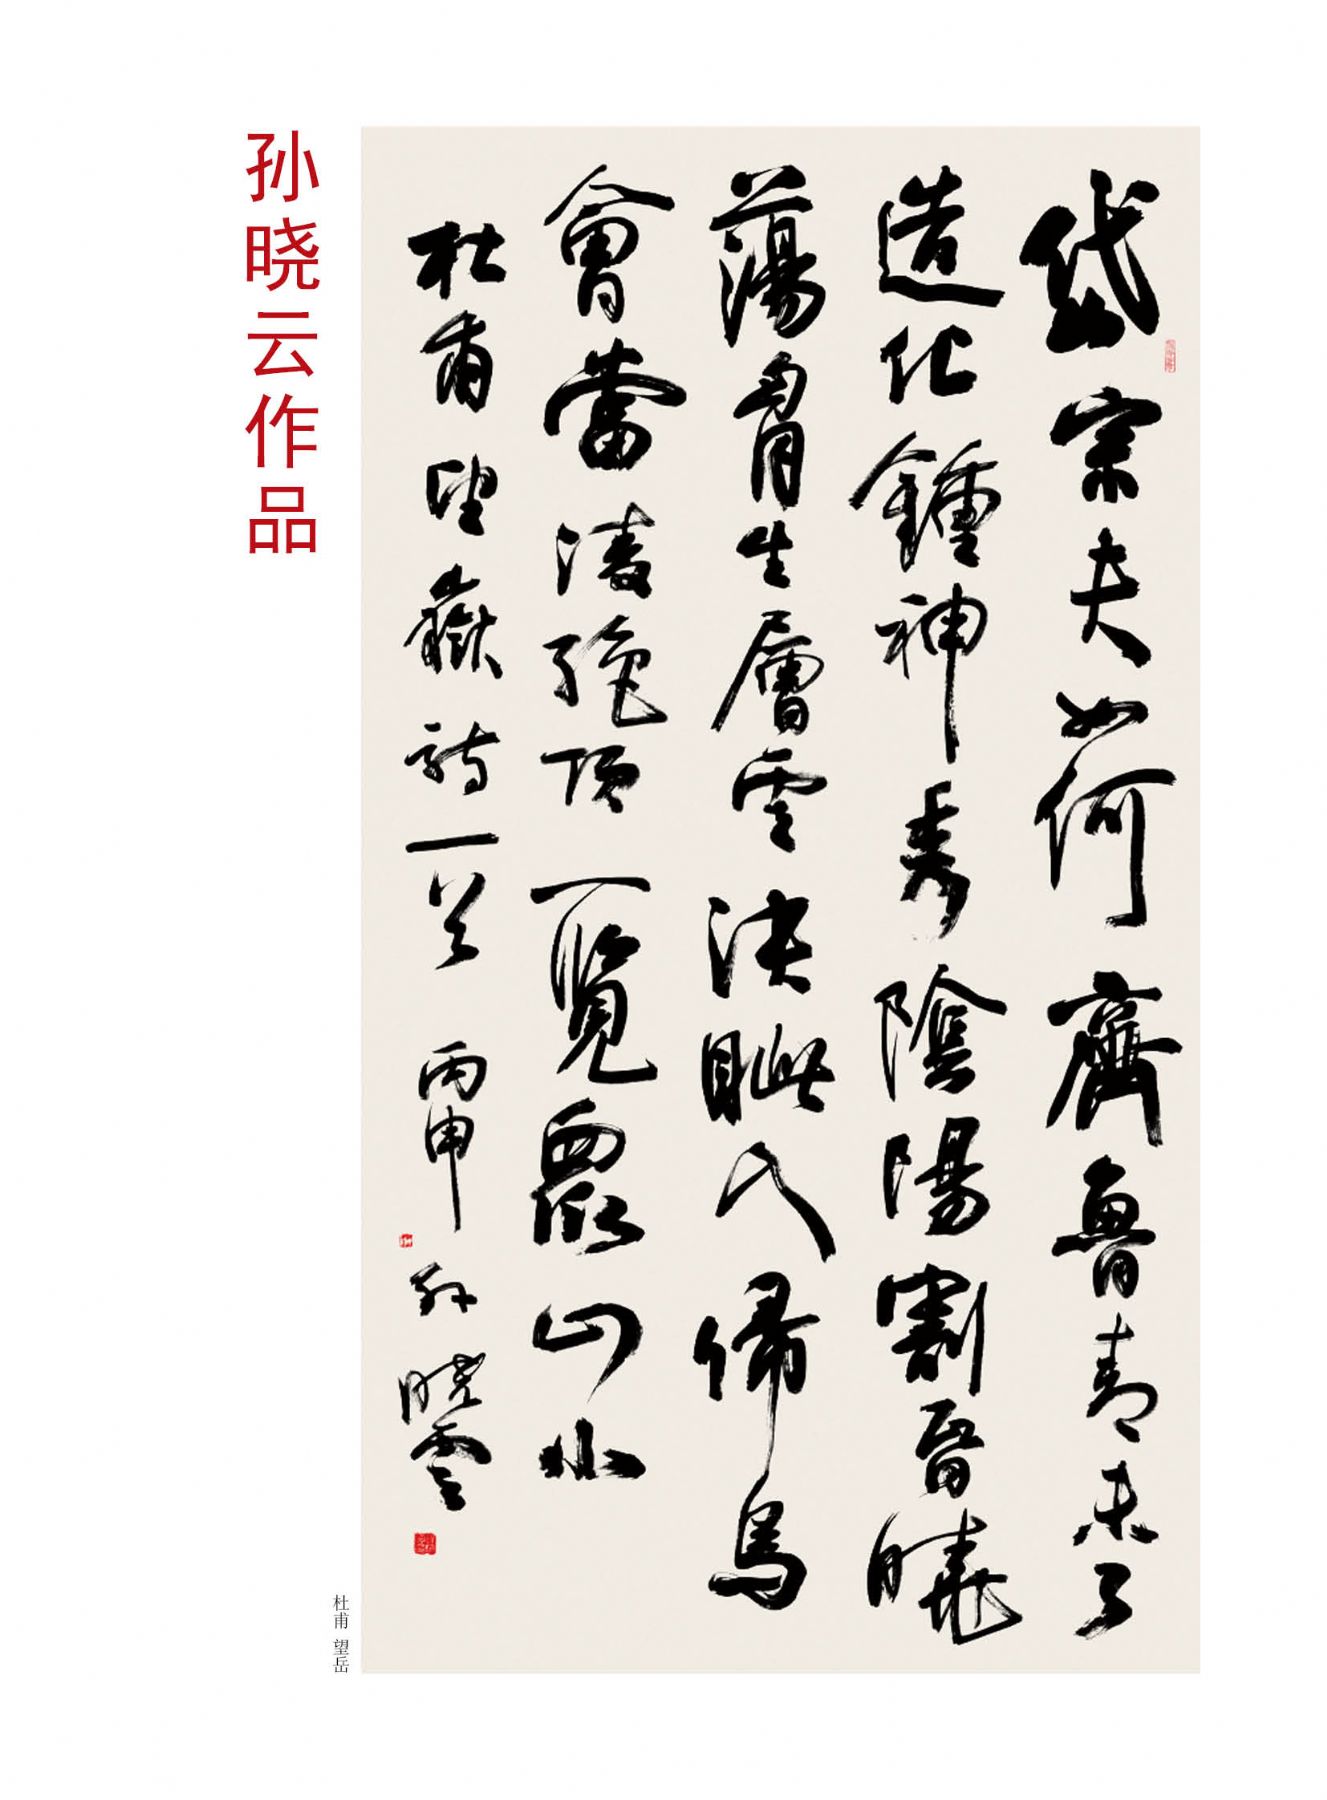 岱宗夫如何齊魯青未了
造化鍾神秀陰陽割昏曉
蕩胷生層雲決眦入歸鳥
會當淩絕頂一覽眾山小
杜甫望嶽詩一首 丙申 孫曉雲
孙晓云作品
杜甫 望岳